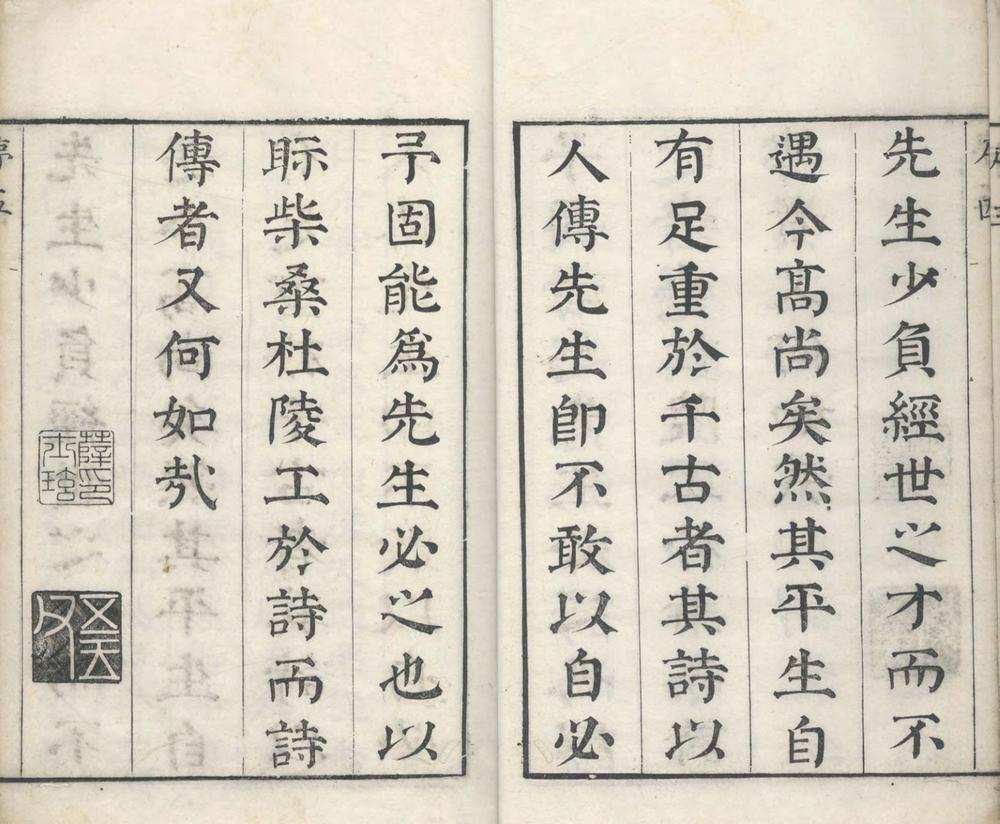 先生少負經世之才而不
遇今高尚矣然其平生自
有足重於千古者其詩以
人傳先生卽不敢以自必
予固能爲先生必之也以
眎柴桑杜陵工於詩而詩
傳者又何如哉